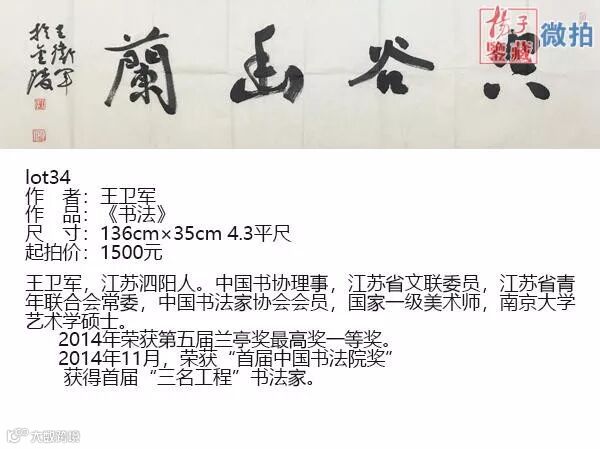 空谷幽蘭
王衛軍
於金陵
揚子
鑒藏
微拍
lot34
作 者：王卫军
作 品：《书法》
尺 寸：136cm×35cm 4.3平尺
起拍价：1500元
王卫军，江苏泗阳人。中国书协理事，江苏省文联委员，江苏省青
年联合会常委，中国书法家协会会员，国家一级美术师，南京大学
艺术学硕士。
2014年荣获第五届兰亭奖最高奖一等奖。
2014年11月，荣获“首届中国书法院奖”
获得首届“三名工程”书法家。
大数跨境